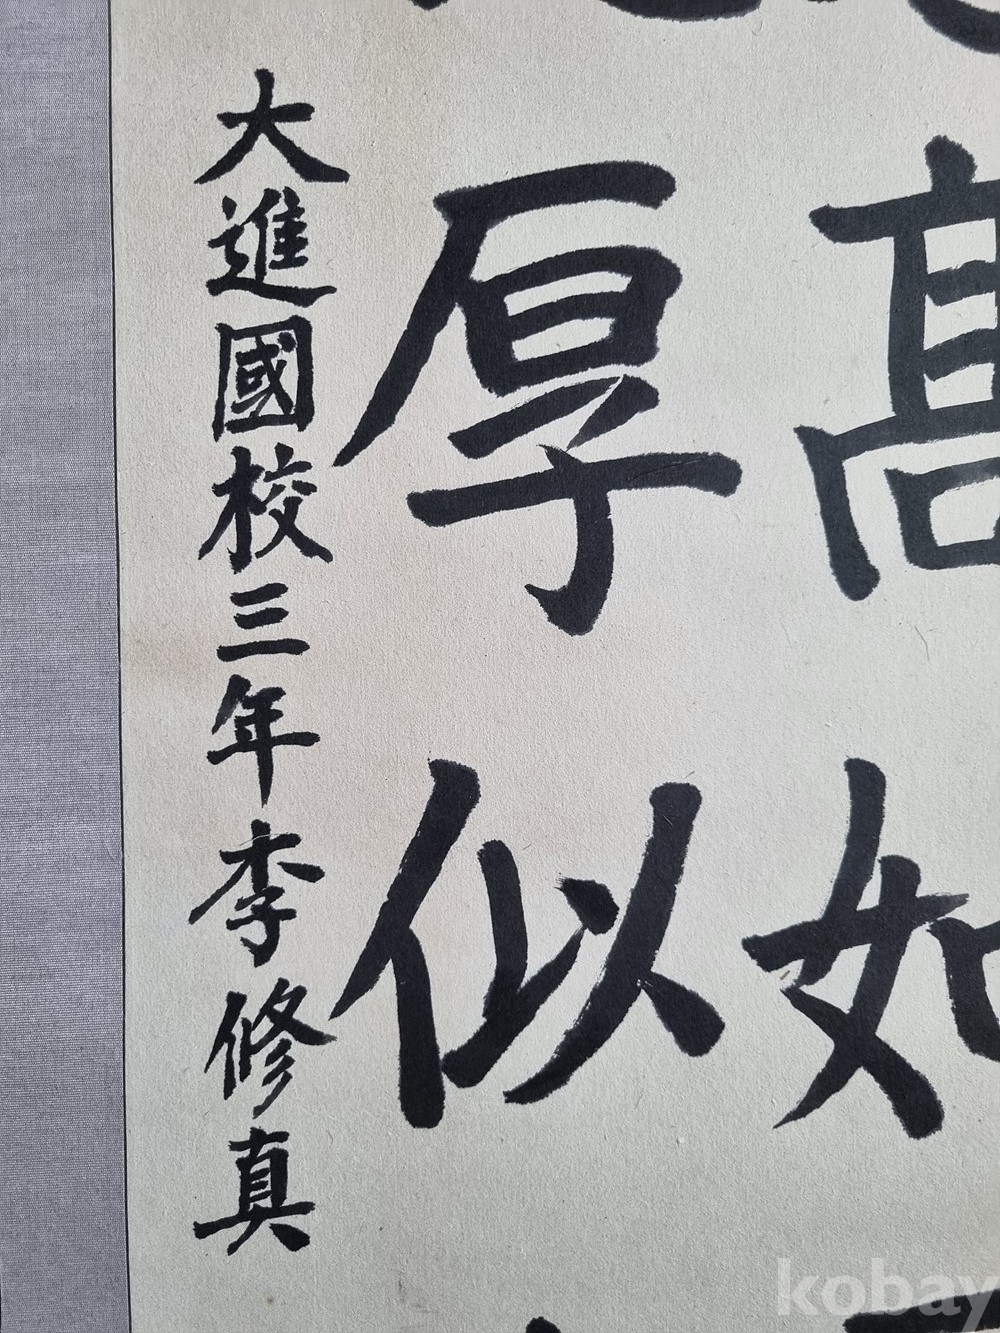 高如
厚似
大進國校三年李修真
kobay